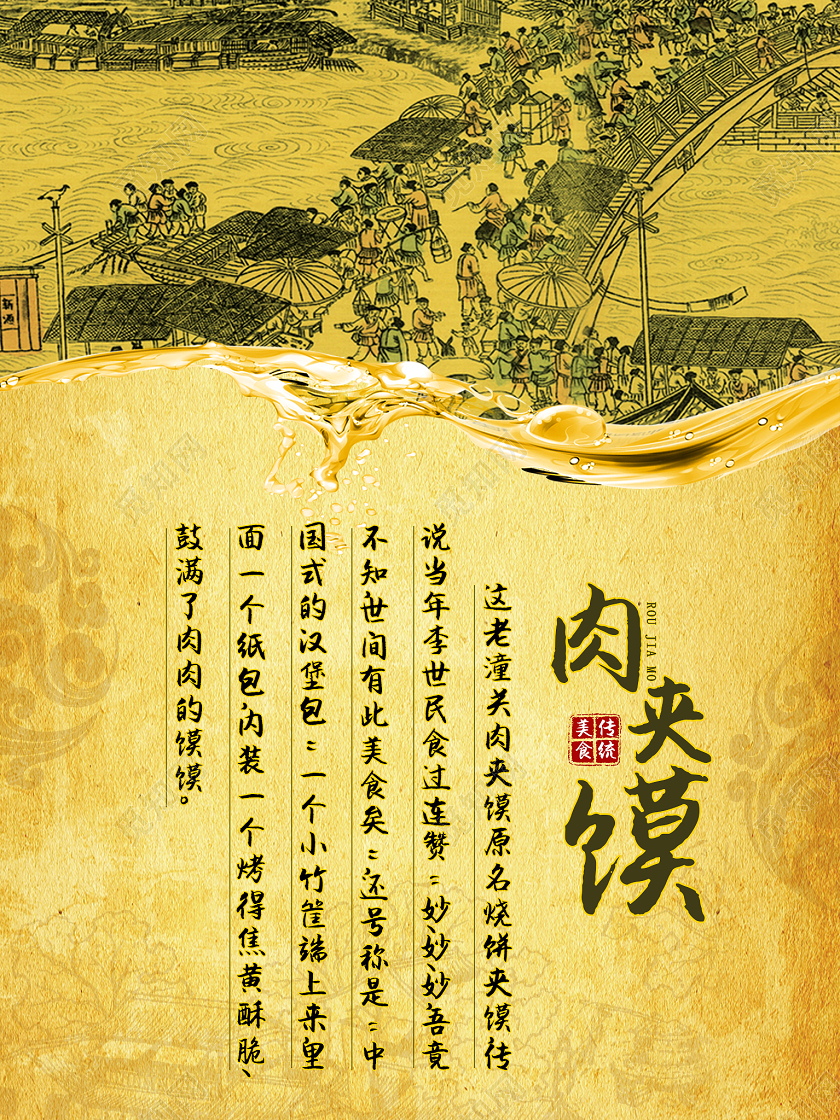 肉夹馍
ROU JIA MO
传统
美食
这老潼关肉夹馍原名烧饼夹馍传
说当年李世民食过连赞：妙妙妙吾竟
不知世间有此美食矣：还号称是：中
国式的汉堡包：一个小竹筐端上来里
面一个纸包内装一个烤得焦黄酥脆、
鼓满了肉肉的馍馍。
新酒